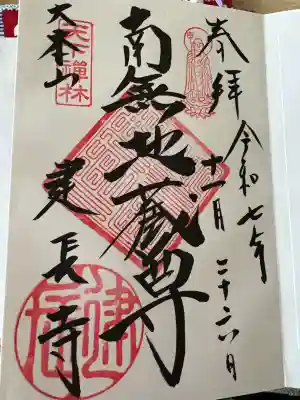 奉拝
令和七年
十一月
二十六日
南無地蔵尊
大本山
天下禅林
建長寺